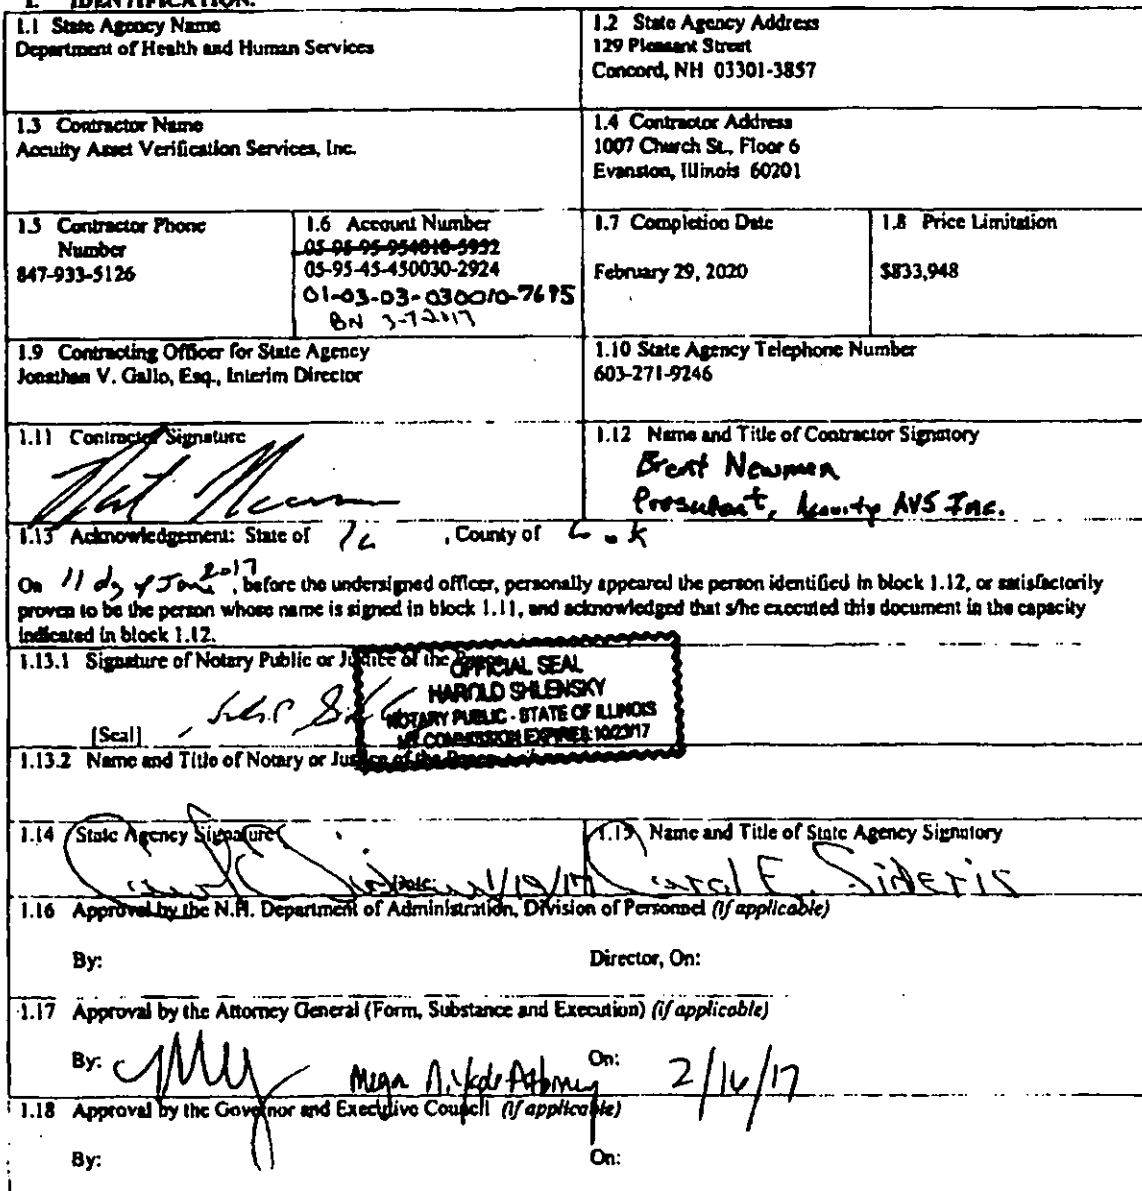 1. IDENTIFICATION.
1.1 State Agency Name
Department of Health and Human Services
1.2 State Agency Address
129 Pleasant Street
Concord, NH 03301-3857
1.3 Contractor Name
Accuity Asset Verification Services, Inc.
1.4 Contractor Address
1007 Church St., Floor 6
Evanston, Illinois 60201
1.5 Contractor Phone
Number
847-933-5126
1.6 Account Number
05-95-45-450030-2924
01-03-03-030010-7695
BN 3-7-2017
1.7 Completion Date
February 29, 2020
1.8 Price Limitation
$833,948
1.9 Contracting Officer for State Agency
Jonathan V. Gallo, Esq., Interim Director
1.10 State Agency Telephone Number
603-271-9246
1.11 Contractor Signature
1.12 Name and Title of Contractor Signatory
Brent Newman
President, Accuity AVS Inc.
1.13 Acknowledgement: State of IL , County of Cook
On 11 day of Jan 2017, before the undersigned officer, personally appeared the person identified in block 1.12, or satisfactorily
proven to be the person whose name is signed in block 1.11, and acknowledged that s/he executed this document in the capacity
indicated in block 1.12.
1.13.1 Signature of Notary Public or Justice of the Peace
OFFICIAL SEAL
HAROLD SHLENSKY
NOTARY PUBLIC - STATE OF ILLINOIS
MY COMMISSION EXPIRES: 10/23/17
[Seal]
1.13.2 Name and Title of Notary or Justice of the Peace
1.14 State Agency Signature
Date: 1/19/17
1.15 Name and Title of State Agency Signatory
Carol E. Sideris
1.16 Approval by the N.H. Department of Administration, Division of Personnel (if applicable)
By: Director, On:
1.17 Approval by the Attorney General (Form, Substance and Execution) (if applicable)
By: Attorney On: 2/16/17
1.18 Approval by the Governor and Executive Council (if applicable)
By: On: